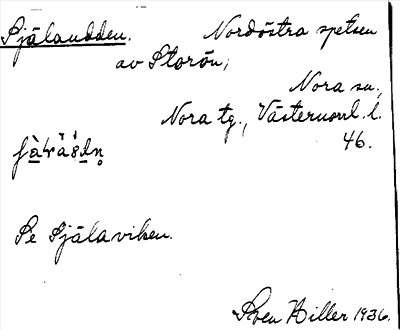 Själaudden. Nordöstra spetsen
av Storön;
Nora sn.,
Nora tg., Västernorrl. l.
46.
Se Själaviken.
Sven Hiller 1936.